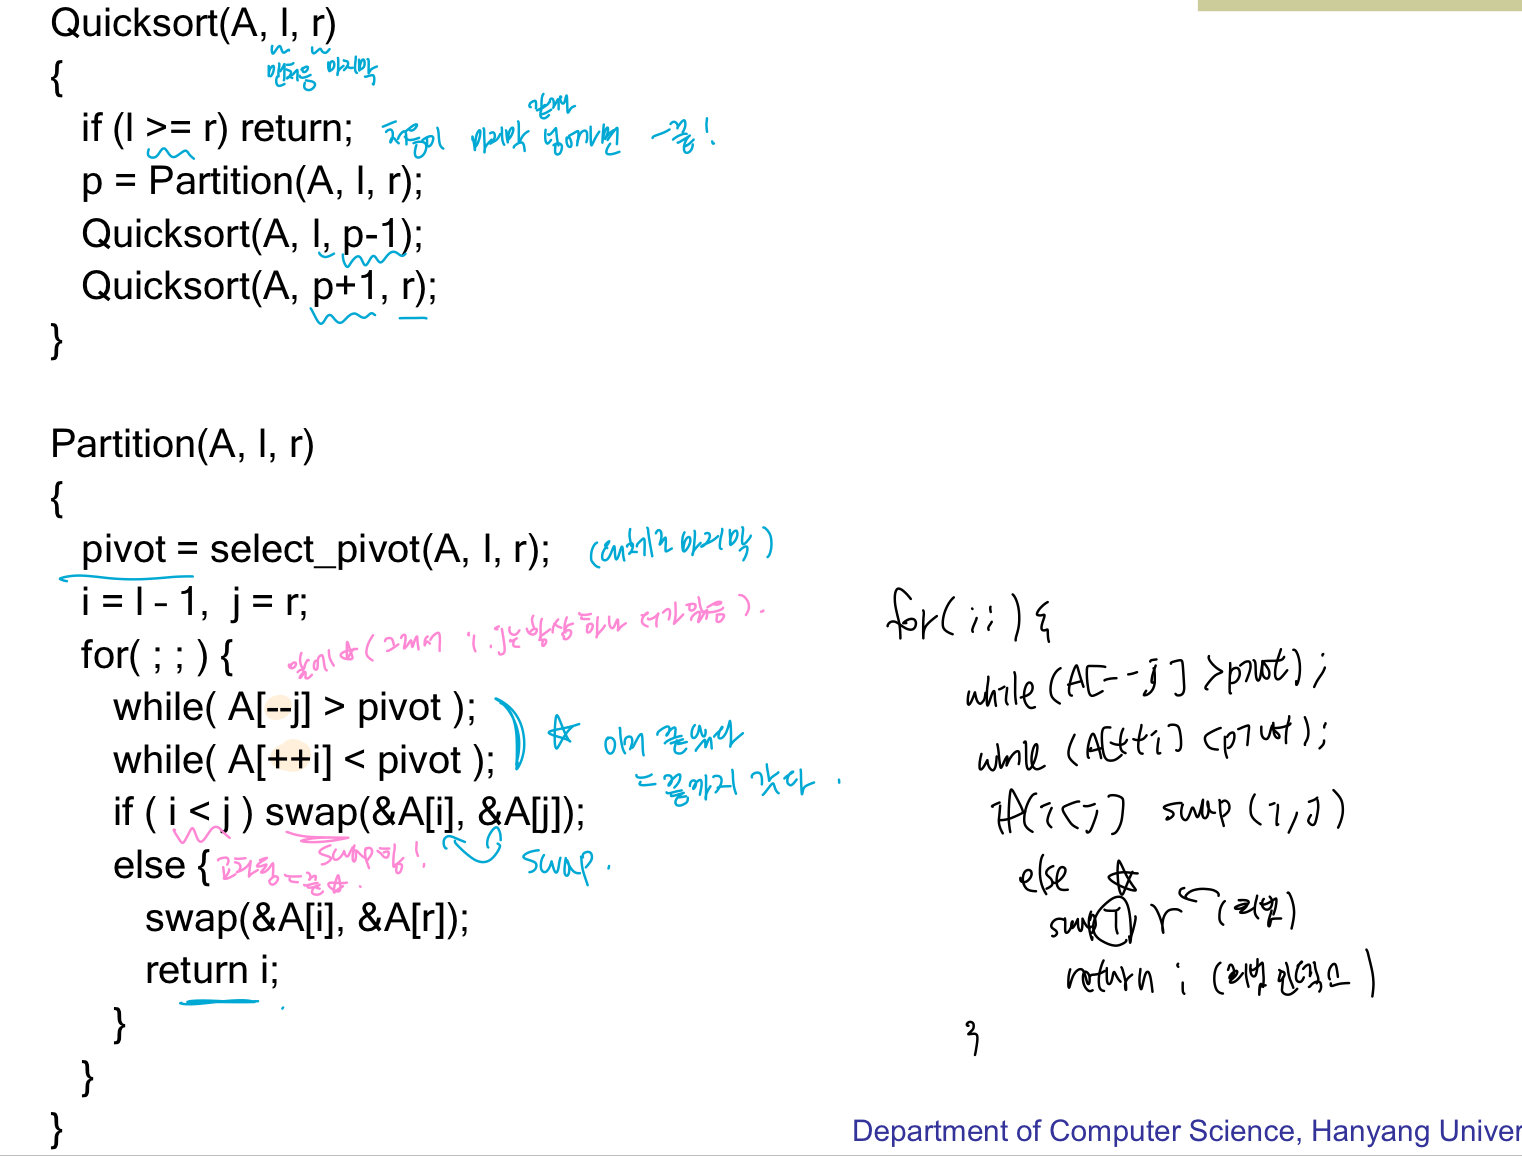 Quicksort(A, l, r)
맨처음 마지막
{
if (l >= r) return;
처음이 마지막 넘어가면 - 끝!
p = Partition(A, l, r);
Quicksort(A, l, p-1);
Quicksort(A, p+1, r);
}
Partition(A, l, r)
{
pivot = select_pivot(A, l, r); (대체로 마지막)
i = l - 1, j = r;
앞에☆ (그래서 i, j는 항상 하나 더가있음).
for( ; ; ) {
while( A[--j] > pivot );
while( A[++i] < pivot );
☆
= 끝까지 갔다.
if ( i < j ) swap(&A[i], &A[j]);
swap함! swap.
else {
swap(&A[i], &A[r]);
return i;
}
}
}
for( ; ; ) {
while (A[--j] > pivot);
while (A[++i] < pivot);
if(i<j) swap (i, j)
else ☆
swap i, r (피벗)
return i (피벗 인덱스)
}
Department of Computer Science, Hanyang Univer